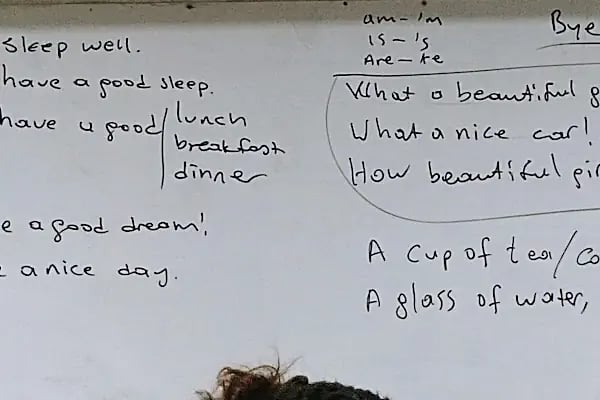 Sleep well.
have a good sleep.
have a good lunch
breakfast
dinner
a good dream!
a nice day.
am - 'm
is - 's
Are - 're
Bye
What a beautiful
What a nice car!
How beautiful
A cup of tea/
A glass of water,